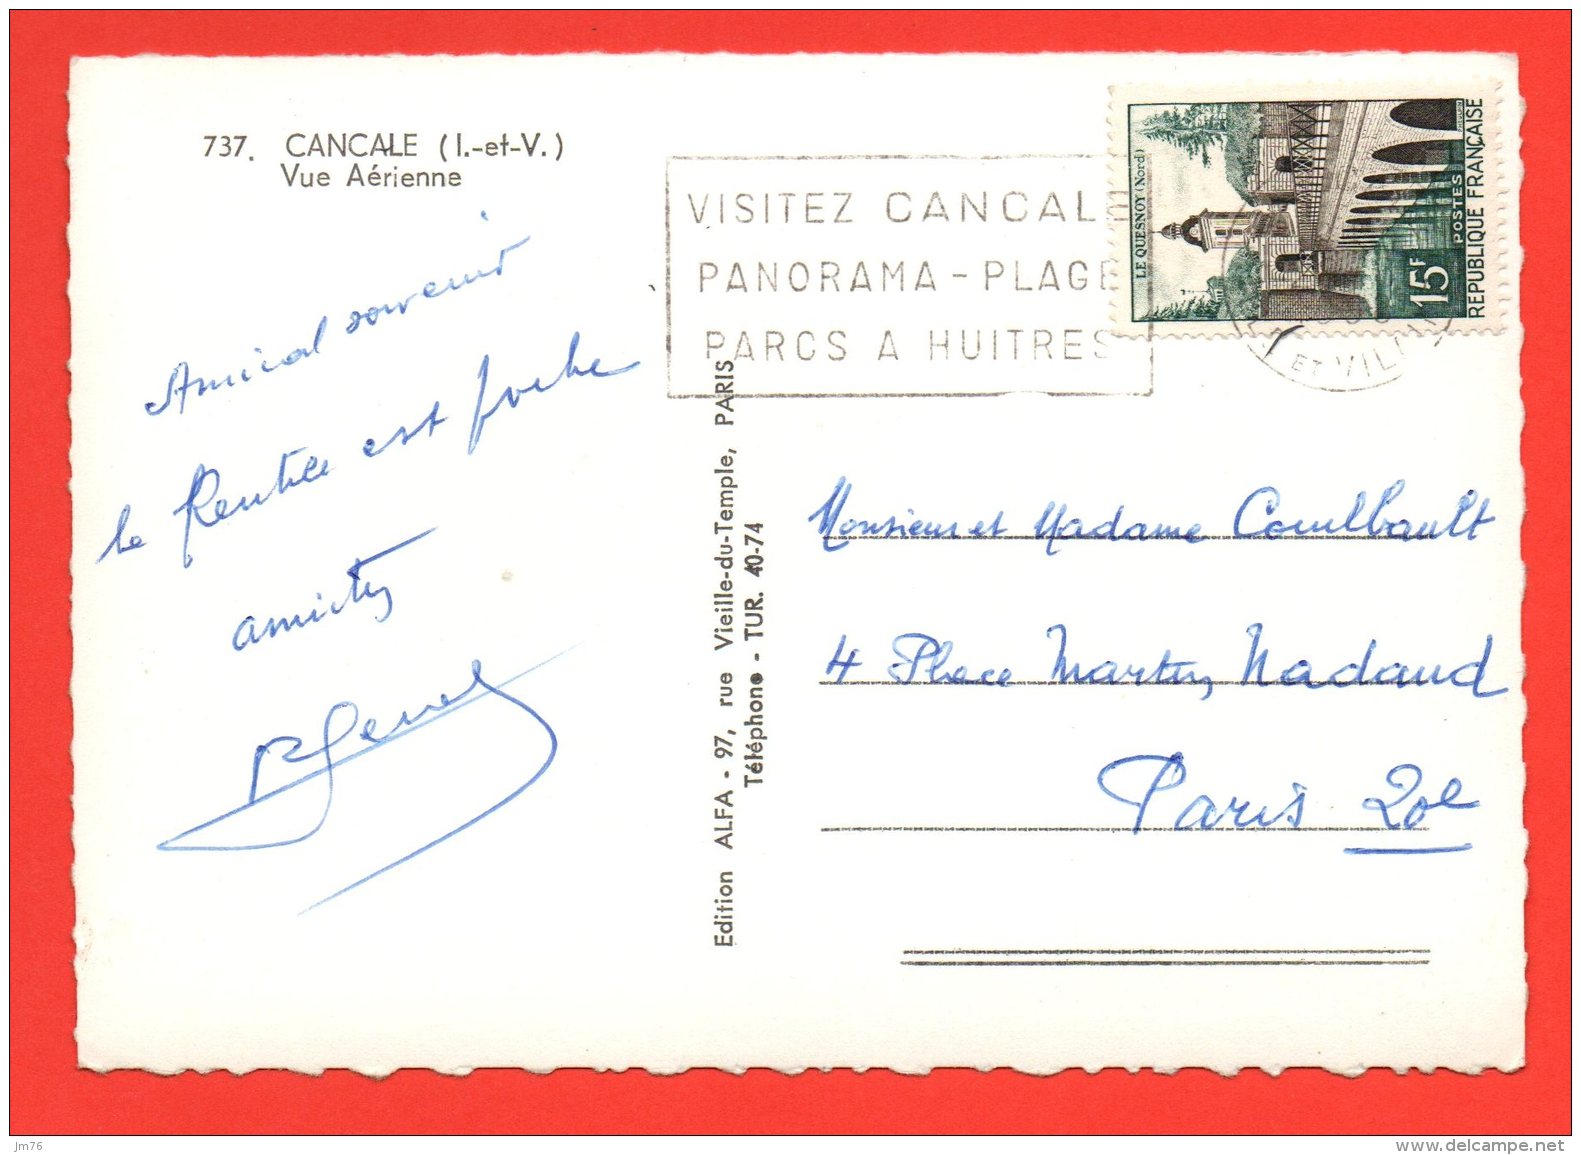 737. CANCALE (I.-et-V.)
Vue Aérienne
Amical souvenir
la Rentrée est proche
amitiés
VISITEZ CANCALE
PANORAMA - PLAGE
PARCS A HUITRES
LE QUESNOY (Nord)
15F
POSTES
REPUBLIQUE FRANÇAISE
ET VIL
Edition ALFA - 97, rue Vieille-du-Temple, PARIS
Téléphone - TUR. 40-74
Monsieur et Madame Couilbault
4 Place Martin Nadaud
Paris 20e
jm76
www.delcampe.net